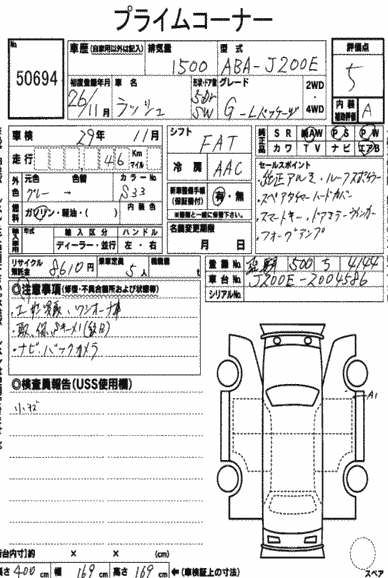 プライムコーナー
No
50694
車歴 (自家用以外は記入) 排気量 型式 評価点
1500 ABA-J200E 5
初度登録年月 車名 形状・ドア数 グレード 2WD 内装 A
26/11月 ラッシュ 5Dr SW G-Lパッケージ 4WD 補助評価
車検 29年 11月 シフト FAT
純正品 SR AW PS PW
カワ TV ナビ エアB
走行 46 Km マイル 冷房 AAC
セールスポイント
外色 元色 色替 カラーNo
グレー → S33
・純正アルミ・ルーフスポイラー
・スペアタイヤハードカバー
燃料 ガソリン・軽油・( ) 内装色
新車整備手帳 (保証書付) 有・無
※整備と一緒に保管
・スマートキー・ドアミラーウィンカー
・フォグランプ
輸入車用 輸入区分 ハンドル
ディーラー・並行 左・右
名義変更期限 月 日
登録No 500 4144
リサイクル預託金 8610円 乗車定員 5人 積載量 t
車台No J200E-2004586
シリアルNo
◎注意事項 (修復・不具合箇所および状態等)
・ナビ、バックカメラ
◎検査員報告 (USS使用欄)
A1
荷台内寸)約 × × (cm)
長さ 400 cm 幅 169 cm 高さ 169 cm ←(車検証上の寸法)
スペア